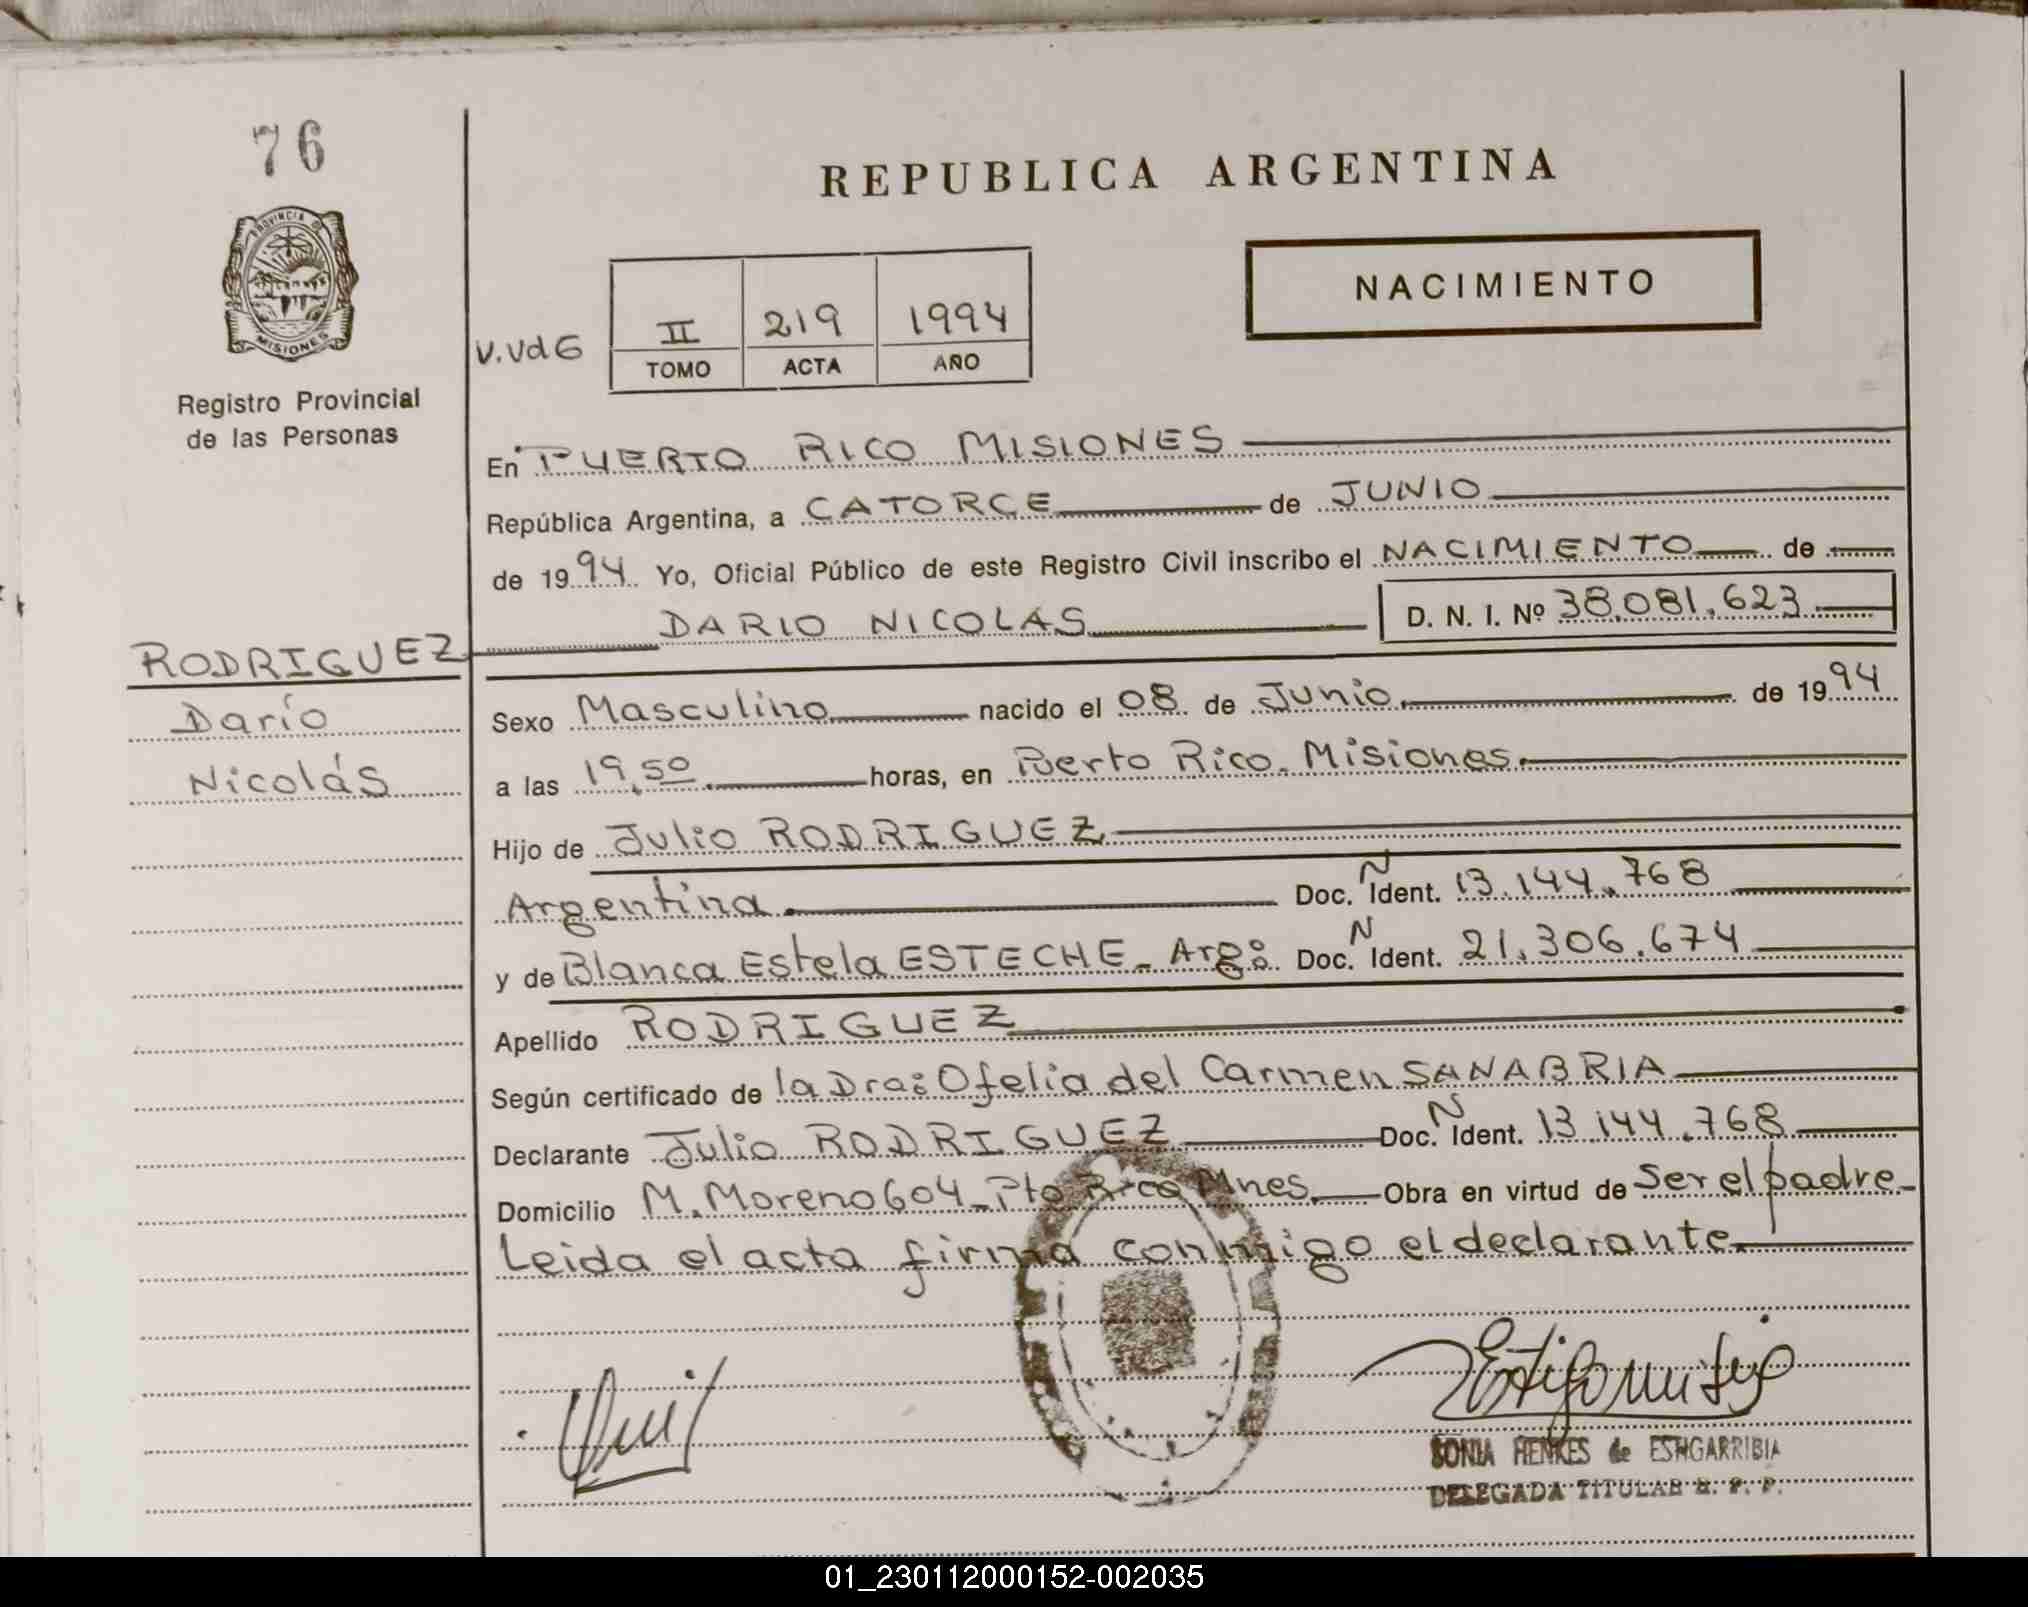 76
PROVINCIA DE
MISIONES
Registro Provincial
de las Personas
REPUBLICA ARGENTINA
NACIMIENTO
V.VdG
II 219 1994
TOMO ACTA AÑO
En PUERTO RICO MISIONES
República Argentina, a CATORCE de JUNIO
de 1994 Yo, Oficial Público de este Registro Civil inscribo el NACIMIENTO de
DARIO NICOLAS D. N. I. Nº 38.081.623
RODRIGUEZ
Darío
Nicolás
Sexo Masculino nacido el 08 de Junio de 1994
a las 19,50 horas, en Puerto Rico. Misiones.
Hijo de Julio RODRIGUEZ
Argentina. Doc. N Ident. 13.144.768
y de Blanca Estela ESTECHE - Arg: Doc. N Ident. 21.306.674
Apellido RODRIGUEZ
Según certificado de la Dra: Ofelia del Carmen SANABRIA
Declarante Julio RODRIGUEZ Doc. N Ident. 13.144.768
Domicilio M. Moreno 604 - Pto Rico Mnes. Obra en virtud de Ser el padre -
Leida el acta firma conmigo el declarante.
SONIA HENKES de ESTIGARRIBIA
DELEGADA TITULAR R. P. P.
01_230112000152-002035